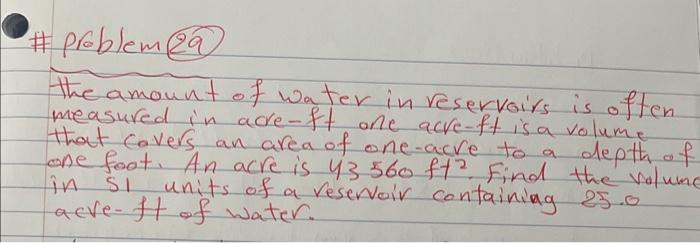 # problem 29
the amount of water in reservoirs is often
measured in acre-ft one acre-ft is a volume
that covers an area of one-acre to a depth of
one foot. An acre is 43 560 ft². Find the volume
in SI units of a reservoir containing 25.0
acre-ft of water.